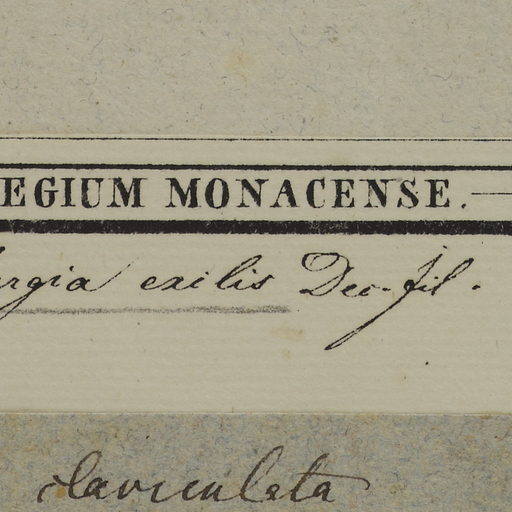 EGIUM MONACENSE.
urgia exilis Dec. fil.
claviculata